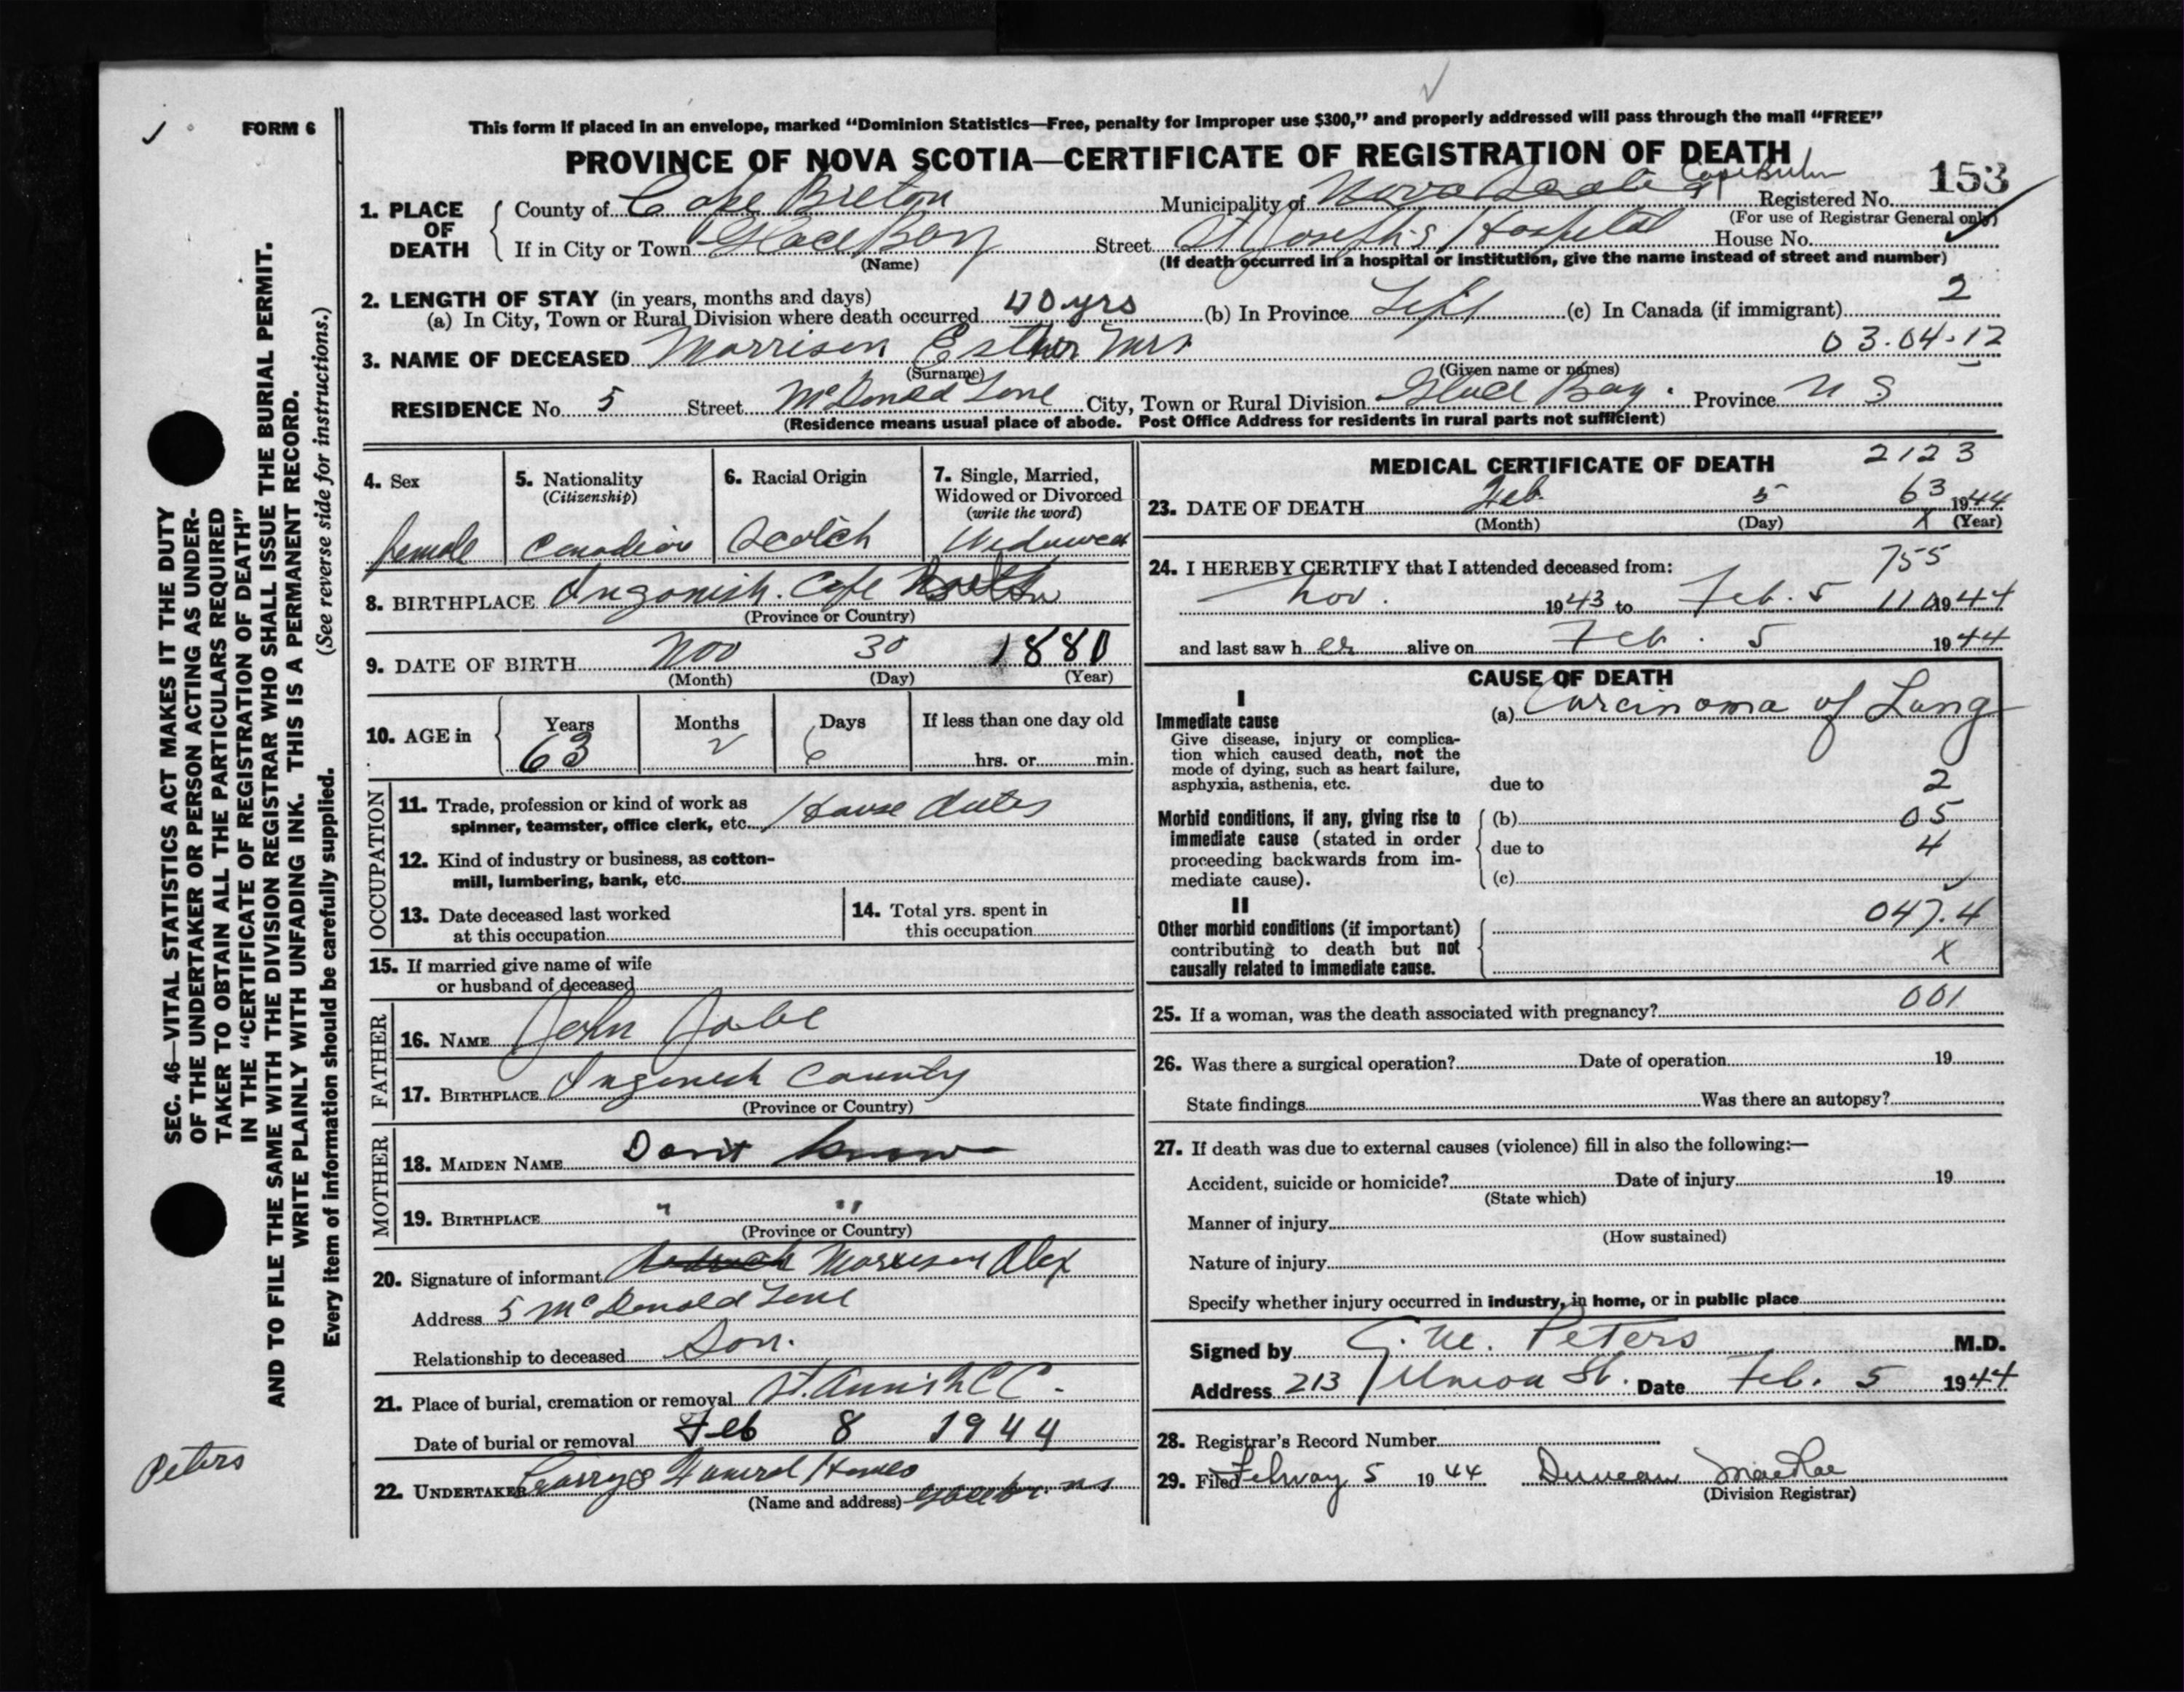 FORM 6
This form if placed in an envelope, marked "Dominion Statistics—Free, penalty for improper use $300," and properly addressed will pass through the mail "FREE"
PROVINCE OF NOVA SCOTIA—CERTIFICATE OF REGISTRATION OF DEATH
153
1. PLACE OF DEATH County of Cape Breton Municipality of Nova Scotia Cape Breton Registered No.
(For use of Registrar General only)
If in City or Town Glace Bay Street St Joseph's Hospital House No.
(Name) (If death occurred in a hospital or institution, give the name instead of street and number)
2. LENGTH OF STAY (in years, months and days) 2
(a) In City, Town or Rural Division where death occurred 40 yrs (b) In Province Life (c) In Canada (if immigrant)
3. NAME OF DECEASED Morrison Esther Mrs 03.04.12
(Surname) (Given name or names)
RESIDENCE No. 5 Street McDonald Lane City, Town or Rural Division Glace Bay. Province N S
(Residence means usual place of abode. Post Office Address for residents in rural parts not sufficient)
4. Sex 5. Nationality 6. Racial Origin 7. Single, Married,
(Citizenship) Widowed or Divorced
(write the word)
female Canadian Scotch Widowed
8. BIRTHPLACE Ingonish. Cape
(Province or Country)
9. DATE OF BIRTH Nov 30 1880
(Month) (Day) (Year)
10. AGE in Years Months Days If less than one day old
63 2 6 hrs. or min.
OCCUPATION
11. Trade, profession or kind of work as
spinner, teamster, office clerk, etc. House duties
12. Kind of industry or business, as cotton-
mill, lumbering, bank, etc.
13. Date deceased last worked 14. Total yrs. spent in
at this occupation this occupation
15. If married give name of wife
or husband of deceased
FATHER
16. NAME John
17. BIRTHPLACE Ingonish County
(Province or Country)
MOTHER
18. MAIDEN NAME Don't know
19. BIRTHPLACE " "
(Province or Country)
20. Signature of informant Morrison Alex
Address 5 McDonald Lane
Relationship to deceased Son.
21. Place of burial, cremation or removal St. Ann's R C C.
Date of burial or removal Feb 8 1944
22. UNDERTAKER Funeral Home
(Name and address) N S
MEDICAL CERTIFICATE OF DEATH 2123
23. DATE OF DEATH Feb. 5 63 1944
(Month) (Day) X (Year)
24. I HEREBY CERTIFY that I attended deceased from: 755
Nov. 1943 to Feb. 5 110 1944
and last saw her alive on Feb. 5 1944
CAUSE OF DEATH
I
Immediate cause (a) Carcinoma of Lung
Give disease, injury or complica-
tion which caused death, not the
mode of dying, such as heart failure,
asphyxia, asthenia, etc. due to 2
Morbid conditions, if any, giving rise to (b) 05
immediate cause (stated in order due to 4
proceeding backwards from im-
mediate cause). (c)
II 047.4
Other morbid conditions (if important)
contributing to death but not X
causally related to immediate cause.
001
25. If a woman, was the death associated with pregnancy?
26. Was there a surgical operation? Date of operation 19
State findings Was there an autopsy?
27. If death was due to external causes (violence) fill in also the following:—
Accident, suicide or homicide? Date of injury 19
(State which)
Manner of injury
(How sustained)
Nature of injury
Specify whether injury occurred in industry, in home, or in public place
Signed by Peters M.D.
Address 213 Union St. Date Feb. 5 1944
28. Registrar's Record Number
29. Filed 5 1944 Duncan MacRae
(Division Registrar)
SEC. 46—VITAL STATISTICS ACT MAKES IT THE DUTY
OF THE UNDERTAKER OR PERSON ACTING AS UNDER-
TAKER TO OBTAIN ALL THE PARTICULARS REQUIRED
IN THE "CERTIFICATE OF REGISTRATION OF DEATH"
AND TO FILE THE SAME WITH THE DIVISION REGISTRAR WHO SHALL ISSUE THE BURIAL PERMIT.
WRITE PLAINLY WITH UNFADING INK. THIS IS A PERMANENT RECORD.
Every item of information should be carefully supplied. (See reverse side for instructions.)
Peters